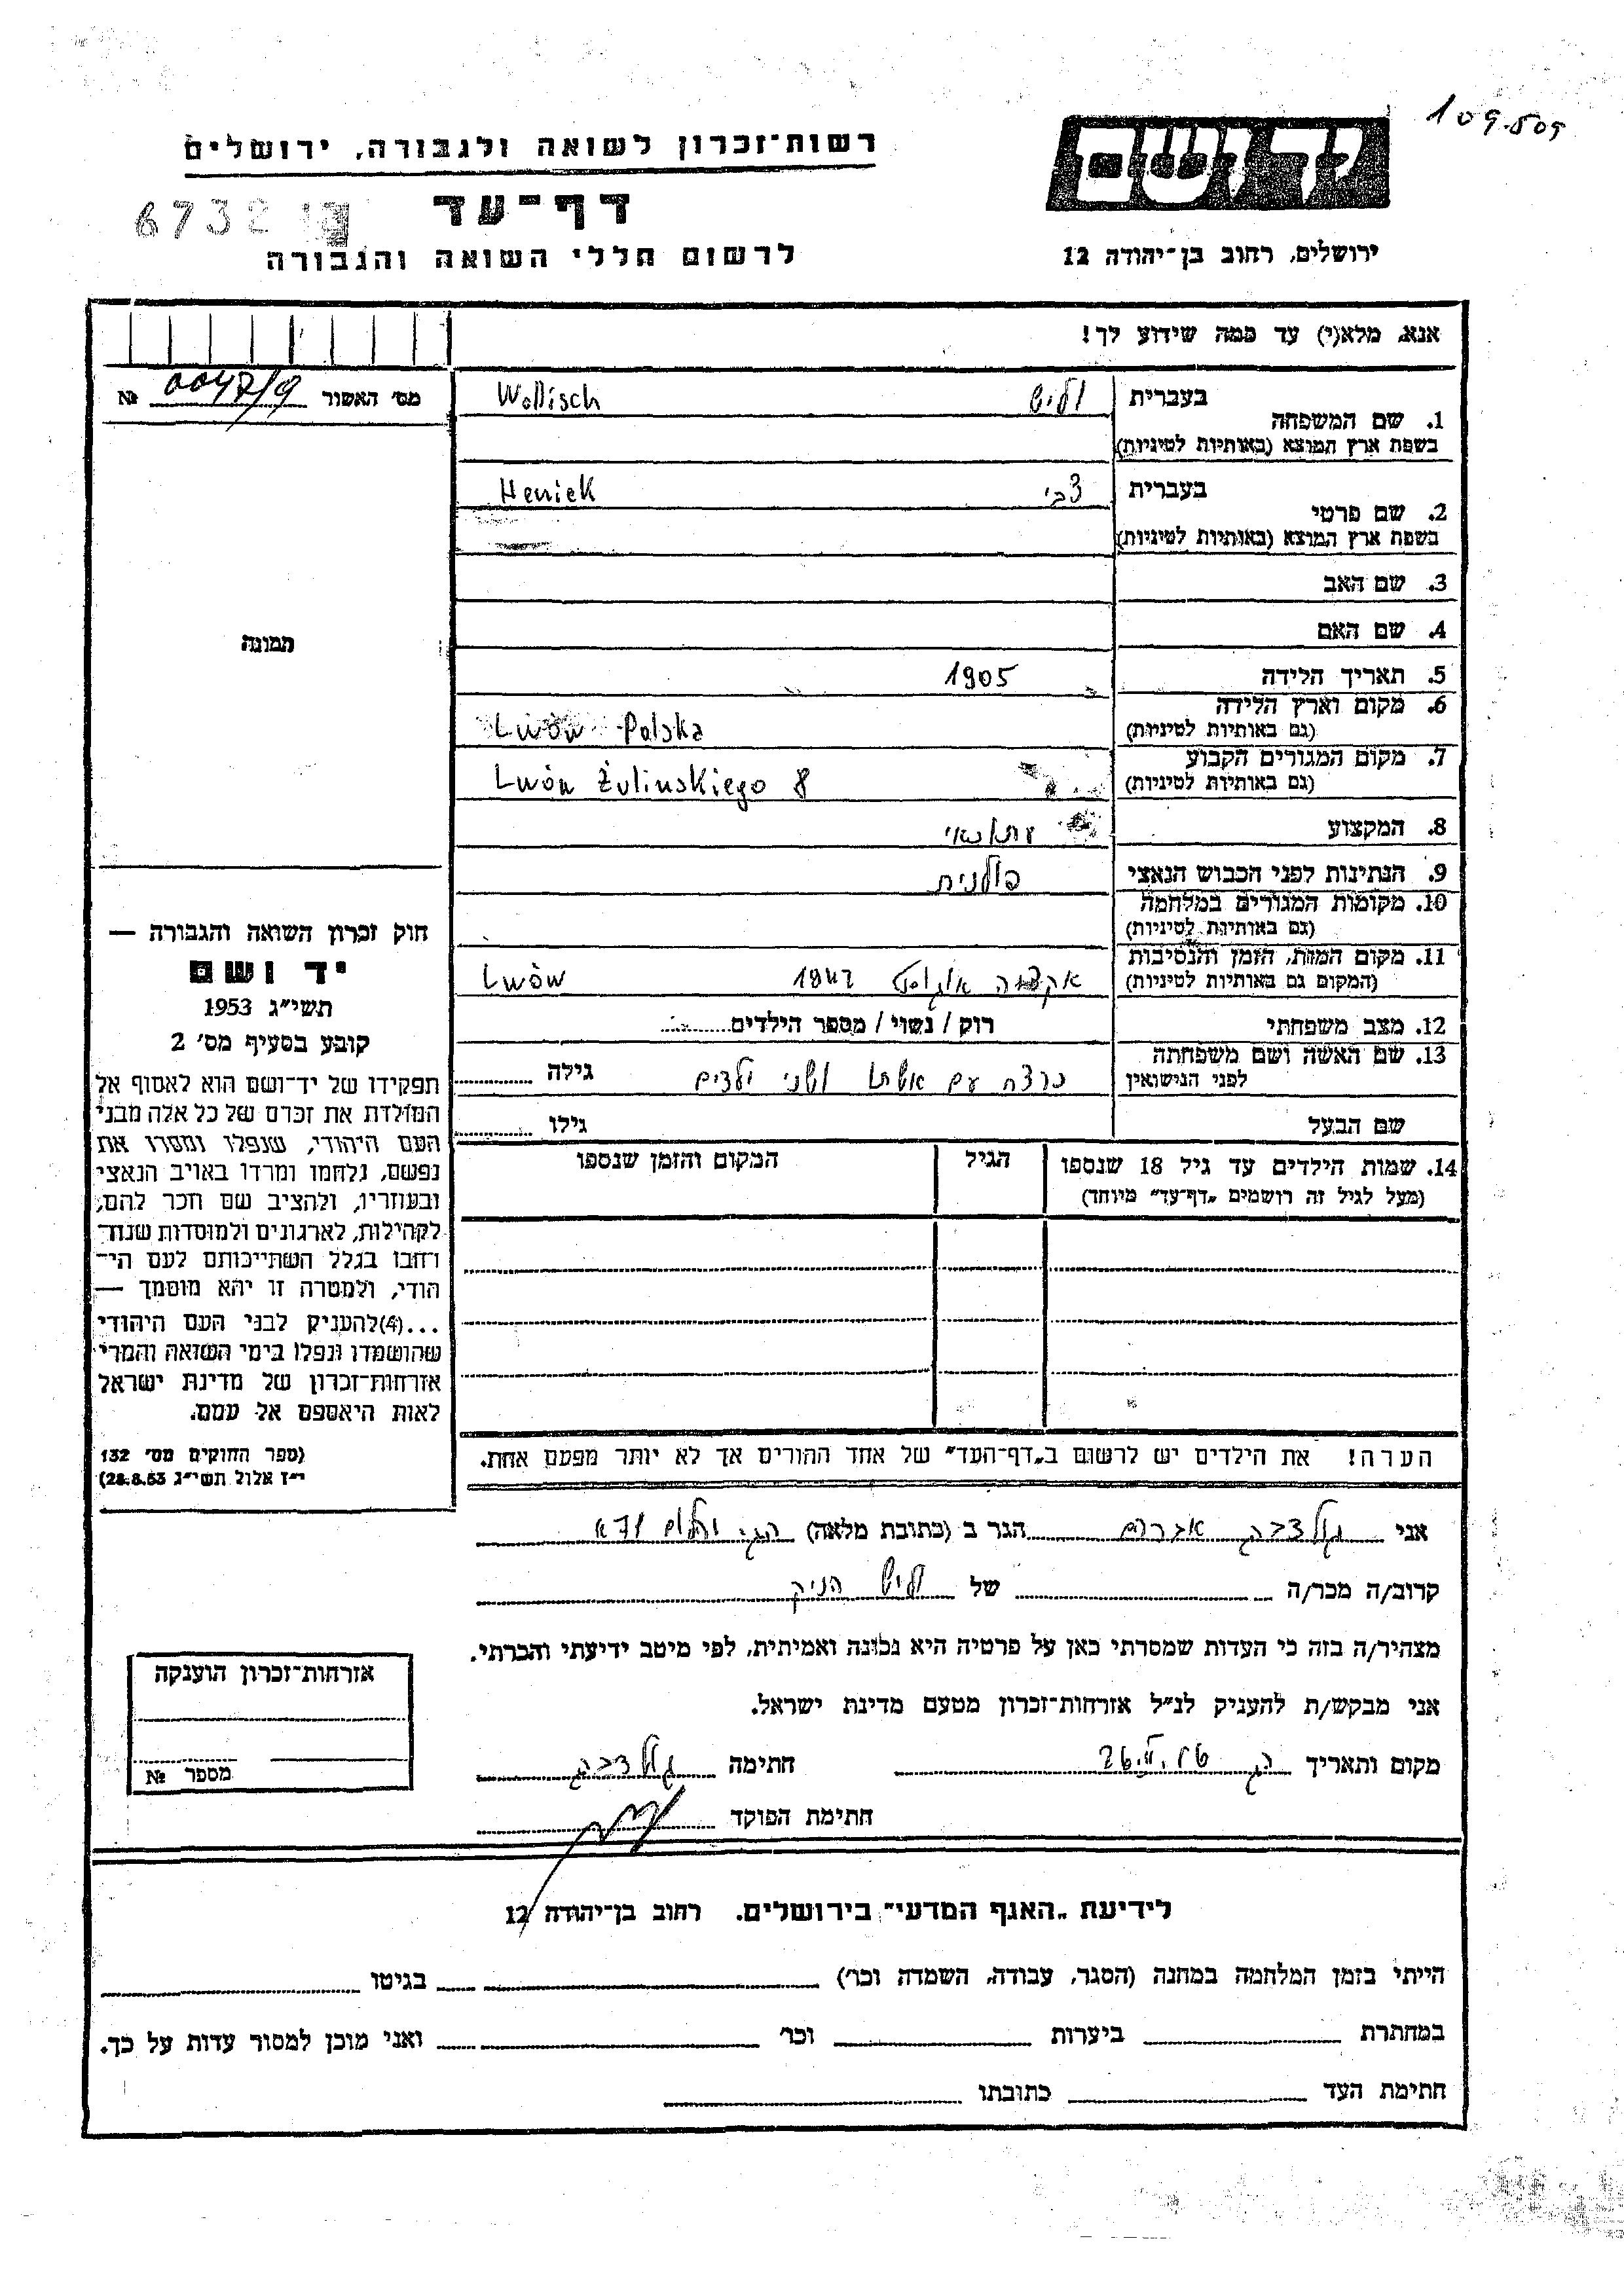 109.509
יד ושם
רשות־זכרון לשואה ולגבורה, ירושלים
דף־עד
6732
לרשום חללי השואה והגבורה
ירושלים, רחוב בן־יהודה 12
אנא, מלא(י) עד כמה שידוע לך!
מס׳ האשור № 0047/9
1. שם המשפחה בעברית וליש Wollisch
בשפת ארץ המוצא (באותיות לטיניות)
2. שם פרטי בעברית צבי Heniek
בשפת ארץ המוצא (באותיות לטיניות)
3. שם האב
4. שם האם
תמונה
5. תאריך הלידה 1905
6. מקום וארץ הלידה Lwów Polska
(גם באותיות לטיניות)
7. מקום המגורים הקבוע Lwów Żulinskiego 8
(גם באותיות לטיניות)
8. המקצוע עתונאי
9. הנתינות לפני הכבוש הנאצי פולנית
10. מקומות המגורים במלחמה
(גם באותיות לטיניות)
11. מקום המות, הזמן והנסיבות אקציה אוגוסט 1942 Lwów
(המקום גם באותיות לטיניות)
12. מצב משפחתי רוק / נשוי / מספר הילדים
13. שם האשה ושם משפחתה נרצח עם אשתו ושני ילדים גילה
לפני הנישואין
שם הבעל גילו
14. שמות הילדים עד גיל 18 שנספו הגיל המקום והזמן שנספו
(מעל לגיל זה רושמים „דף־עד״ מיוחד)
חוק זכרון השואה והגבורה —
יד ושם
תשי״ג 1953
קובע בסעיף מס׳ 2
תפקידו של יד־ושם הוא לאסוף אל
המולדת את זכרם של כל אלה מבני
העם היהודי, שנפלו ומסרו את
נפשם, נלחמו ומרדו באויב הנאצי
ובעוזריו, ולהציב שם וזכר להם,
לקהילות, לארגונים ולמוסדות שנח־
רחבו בגלל השתייכותם לעם הי־
הודי, ולמטרה זו יהא מוסמך —
...(4)להעניק לבני העם היהודי
שהושמדו ונפלו בימי השואה והמרי
אזרחות־זכרון של מדינת ישראל
לאות היאספם אל עמם.
(ספר החוקים מס׳ 132
י״ז אלול תשי״ג 28.8.53)
הערה! את הילדים יש לרשום ב„דף־העד״ של אחד ההורים אך לא יותר מפעם אחת.
אני גולדברג אברהם הגר ב (כתובת מלאה)
קרוב/ה מכר/ה של וליש הניק
מצהיר/ה בזה כי העדות שמסרתי כאן על פרטיה היא נכונה ואמיתית, לפי מיטב ידיעתי והכרתי.
אני מבקש/ת להעניק לנ״ל אזרחות־זכרון מטעם מדינת ישראל.
מקום ותאריך חתימה גולדברג
חתימת הפוקד
אזרחות־זכרון הוענקה
מספר №
לידיעת „האגף המדעי״ בירושלים. רחוב בן־יהודה 12
הייתי בזמן המלחמה במחנה (הסגר, עבודה, השמדה וכר׳) בגיטו
במחתרת ביערות וכר׳ ואני מוכן למסור עדות על כך.
חתימת העד כתובתו